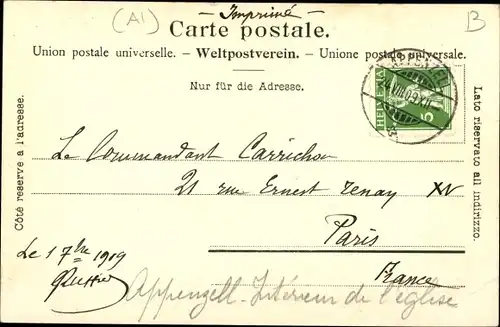 (AI)
Imprimé
B
Carte postale.
Union postale universelle. - Weltpostverein. - Unione postale universale.
Nur für die Adresse.
Côté réservé à l'adresse.
Lato riservato all indirizzo.
APPENZELL
24.VIII.09.XII
HELVETIA
5
Le Commandant Carrichon
21 rue Ernest Renay XV
Paris
France
Le 1 7bre 1909
Appenzell - Intérieur de l'église